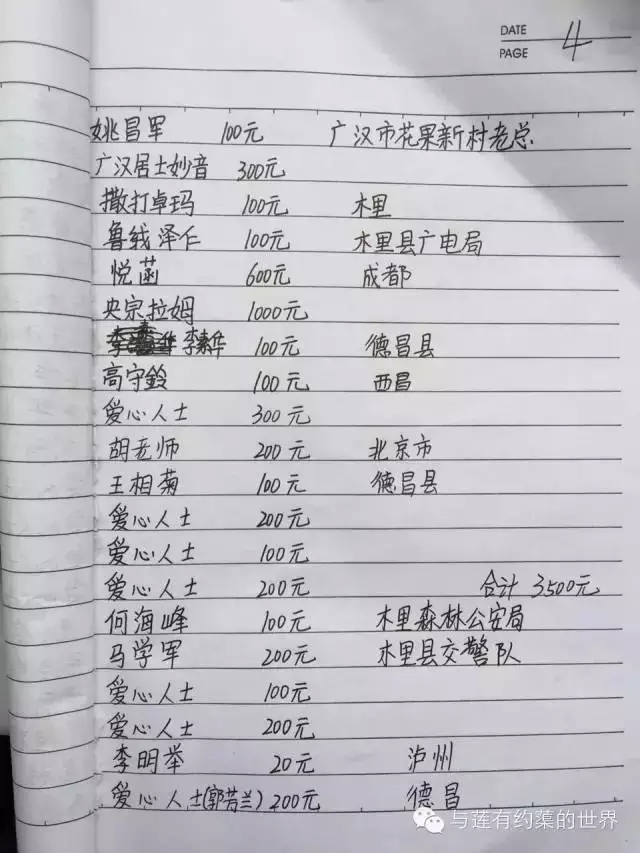 DATE
PAGE 4
姚昌军 100元 广汉市花果新村老总
广汉居士妙音 300元
撒打卓玛 100元 木里
鲁绒泽仁 100元 木里县广电局
悦菡 600元 成都
央宗拉姆 1000元
李素华 100元 德昌县
高守鈴 100元 西昌
爱心人士 300元
胡老师 200元 北京市
王相菊 100元 德昌县
爱心人士 200元
爱心人士 100元
爱心人士 200元 合计 3500元
何海峰 100元 木里森林公安局
马学军 200元 木里县交警队
爱心人士 100元
爱心人士 200元
李明举 20元 泸州
爱心人士(郭芳兰) 200元 德昌
与莲有约蕖的世界